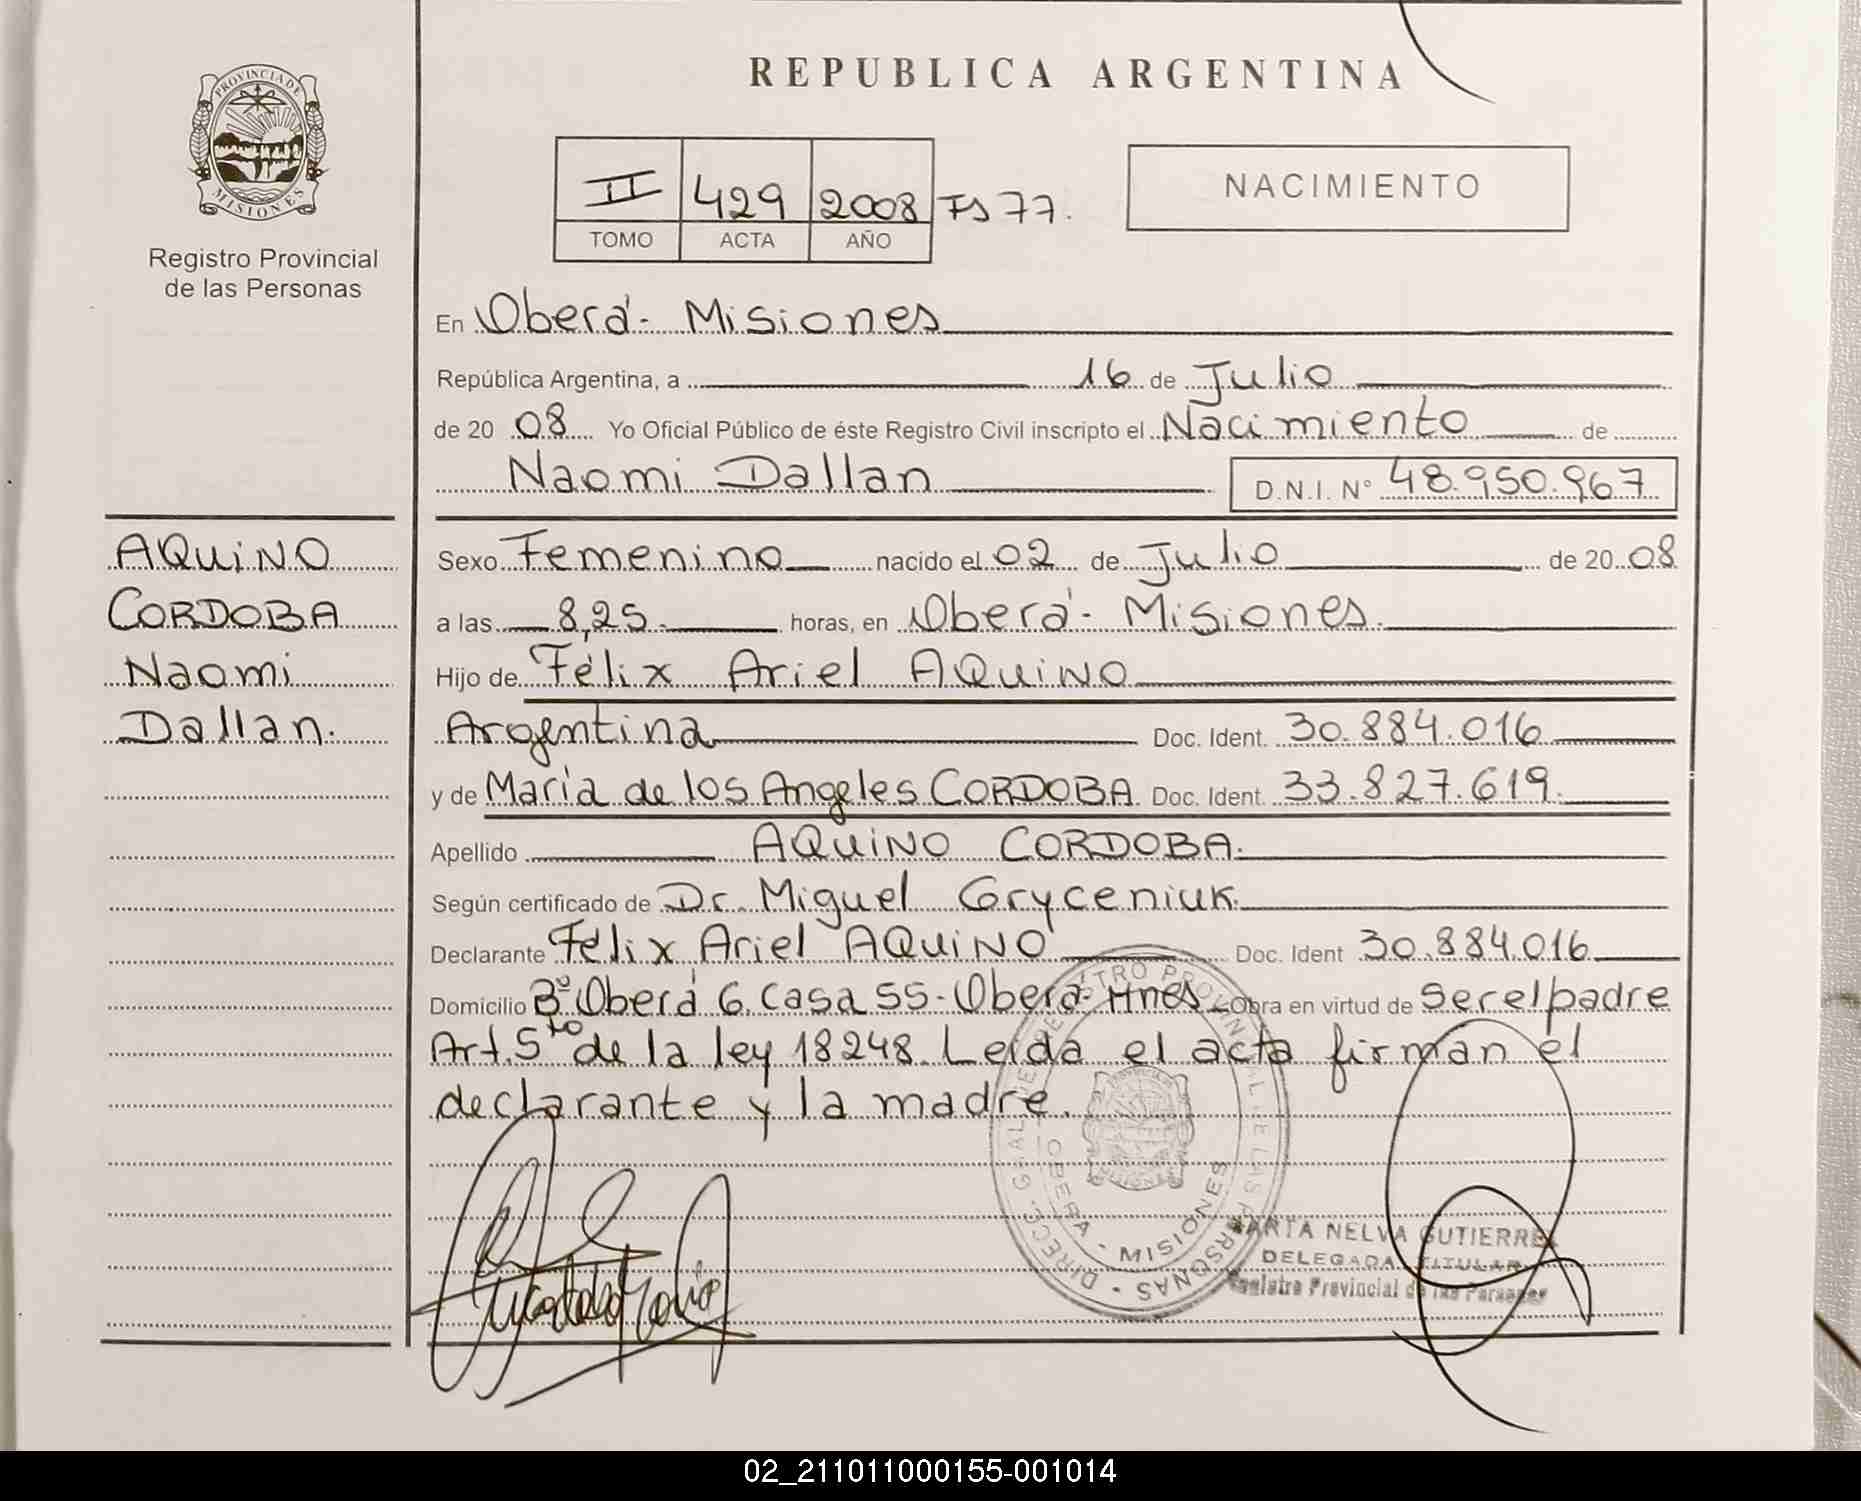 REPUBLICA ARGENTINA
PROVINCIA DE
MISIONES
Registro Provincial
de las Personas
II 429 2008 Fs 77.
TOMO ACTA AÑO
NACIMIENTO
En Oberá- Misiones
República Argentina, a 16 de Julio
de 20 08 Yo Oficial Público de éste Registro Civil inscripto el Nacimiento de
Naomi Dallan D.N.I. Nº 48.950.967
AQUINO
CORDOBA
Naomi
Dallan.
Sexo Femenino nacido el 02 de Julio de 20 08
a las 8,25. horas, en Oberá- Misiones.
Hijo de Félix Ariel AQUINO
Argentina Doc. Ident. 30.884.016
y de María de los Angeles CORDOBA Doc. Ident. 33.827.619.
Apellido AQUINO CORDOBA.
Según certificado de Dr. Miguel Gryceniuk.
Declarante Félix Ariel AQUINO Doc. Ident 30.884.016
Domicilio Bº Oberá 6. Casa 55- Oberá- Mnes Obra en virtud de Ser el padre
Art. 5to de la ley 18248. Leída el acta firman el
declarante y la madre.
DIRECC. GRAL. DE REGISTRO PROVINCIAL DE LAS PERSONAS
OBERA - MISIONES
MARTA NELVA GUTIERREZ
DELEGADA TITULAR
Registro Provincial de las Personas
02_211011000155-001014